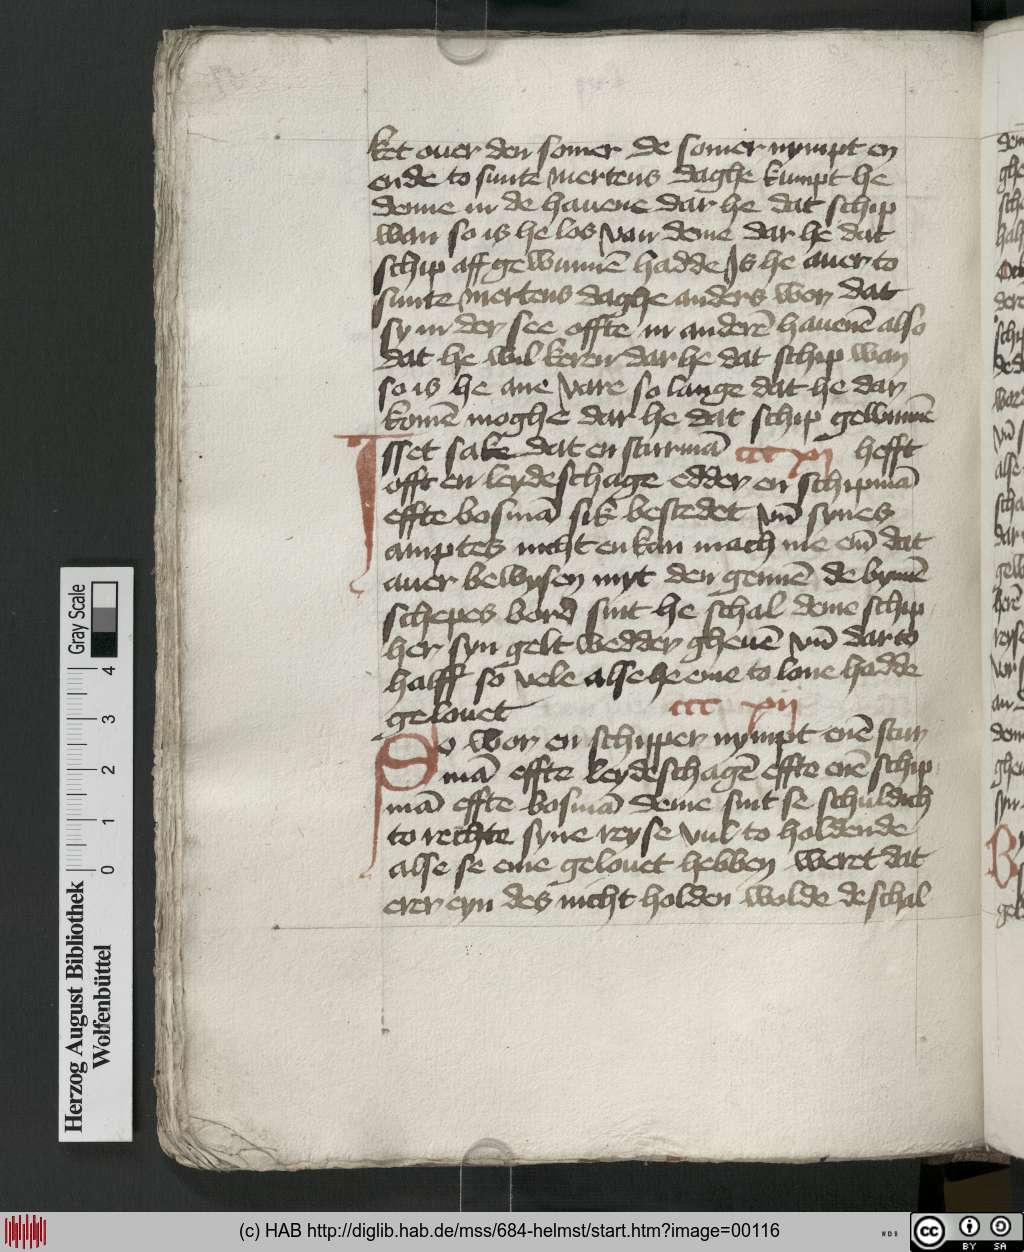 ket ouer den somer de somer nympt en
ende to sunte mertens daghe kumpt he
denne in de hauene dar he dat schip
wan so is he los van deme dar he dat
schip aff gewunnē hadde Is he auer to
sunte mertens daghe anders wor dat
sy in der see offte in anderē hauenē also
dat he wil keren dar he dat schip wan
so is he ane vare so lange dat he dar
komē moghe dar he dat schip gewunnē
Isset sake dat en sturmā ccc xij hefft
offt en leydeschage edder en schipmā
effte bosmā sik bestedet vn̄ synes
amptes nicht en kan mach me em̄ dat
auer bewysen myt den gennē de bynnē
schepes bord sint he schal deme schip
her syn gelt wedder gheuē vn̄ dar to
halff so vele alse he eme to lone hadde
gelouet ccc xiij
So wor en schipper nympt enē stur
mā effte leydeschagē effte enē schip
mā effte bosmā deme sint se schuldich
to rechte syne reyse vul to holdende
alse se eme gelouet hebben weret dat
erer eyn des nicht holden wolde de schal
Herzog August Bibliothek
Wolfenbüttel
0 1 2 3 4
Gray Scale
(c) HAB http://diglib.hab.de/mss/684-helmst/start.htm?image=00116
WDB
cc BY SA